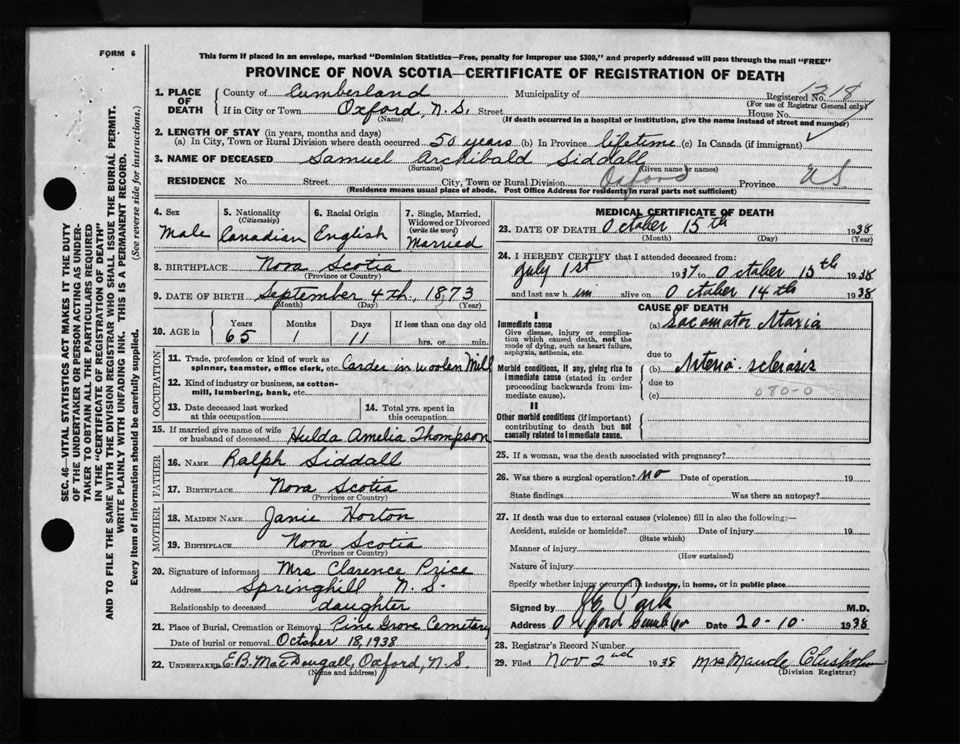 FORM 6
This form if placed in an envelope, marked "Dominion Statistics—Free, penalty for improper use $300," and properly addressed will pass through the mail "FREE"
PROVINCE OF NOVA SCOTIA—CERTIFICATE OF REGISTRATION OF DEATH
SEC. 46—VITAL STATISTICS ACT MAKES IT THE DUTY
OF THE UNDERTAKER OR PERSON ACTING AS UNDER-
TAKER TO OBTAIN ALL THE PARTICULARS REQUIRED
IN THE "CERTIFICATE OF REGISTRATION OF DEATH"
AND TO FILE THE SAME WITH THE DIVISION REGISTRAR WHO SHALL ISSUE THE BURIAL PERMIT.
WRITE PLAINLY WITH UNFADING INK. THIS IS A PERMANENT RECORD.
Every item of information should be carefully supplied. (See reverse side for instructions.)
1. PLACE OF DEATH
County of Cumberland Municipality of Registered No. 1218
(For use of Registrar General only)
If in City or Town Oxford, N. S. Street House No.
(Name) (If death occurred in a hospital or institution, give the name instead of street and number)
2. LENGTH OF STAY (in years, months and days)
(a) In City, Town or Rural Division where death occurred 50 years (b) In Province lifetime (c) In Canada (if immigrant)
3. NAME OF DECEASED Samuel Archibald Siddall
(Surname) (Given name or names)
RESIDENCE No. Street City, Town or Rural Division Oxford Province NS
(Residence means usual place of abode. Post Office Address for residents in rural parts not sufficient)
4. Sex
Male
5. Nationality
(Citizenship)
Canadian
6. Racial Origin
English
7. Single, Married, Widowed or Divorced
(write the word)
Married
8. BIRTHPLACE Nova Scotia
(Province or Country)
9. DATE OF BIRTH September 4th, 1873
(Month) (Day) (Year)
10. AGE in Years Months Days If less than one day old
65 1 11 hrs. or min.
OCCUPATION
11. Trade, profession or kind of work as
spinner, teamster, office clerk, etc. Carder in woolen Mill
12. Kind of industry or business, as cotton-
mill, lumbering, bank, etc.
13. Date deceased last worked
at this occupation
14. Total yrs. spent in
this occupation
15. If married give name of wife
or husband of deceased Hulda Amelia Thompson
FATHER
16. NAME Ralph Siddall
17. BIRTHPLACE Nova Scotia
(Province or Country)
MOTHER
18. MAIDEN NAME Janie Horton
19. BIRTHPLACE Nova Scotia
(Province or Country)
20. Signature of informant Mrs Clarence Price
Address Springhill N. S.
Relationship to deceased daughter
21. Place of Burial, Cremation or Removal Pine Grove Cemetary
Date of burial or removal October 18, 1938
22. UNDERTAKER E B. MacDougall, Oxford, N S
(Name and address)
MEDICAL CERTIFICATE OF DEATH
23. DATE OF DEATH October 15th 1938
(Month) (Day) (Year)
24. I HEREBY CERTIFY that I attended deceased from:
July 1st 1937 to October 15th 1938
and last saw him alive on October 14th 1938
CAUSE OF DEATH
I
Immediate cause
Give disease, injury or complica-
tion which caused death, not the
mode of dying, such as heart failure,
asphyxia, asthenia, etc.
(a) Locomotor Ataxia
due to
Morbid conditions, if any, giving rise to
immediate cause (stated in order
proceeding backwards from im-
mediate cause).
(b) Arterio-sclerosis
due to
(c) 080-0
II
Other morbid conditions (if important)
contributing to death but not
causally related to immediate cause.
25. If a woman, was the death associated with pregnancy?
26. Was there a surgical operation? No Date of operation 19
State findings Was there an autopsy?
27. If death was due to external causes (violence) fill in also the following:—
Accident, suicide or homicide? Date of injury 19
(State which)
Manner of injury
(How sustained)
Nature of injury
Specify whether injury occurred in industry, in home, or in public place
Signed by Park M.D.
Address Oxford Date 20-10. 1938
28. Registrar's Record Number
29. Filed Nov 2nd 1938 Mrs Maude Chisholm
(Division Registrar)